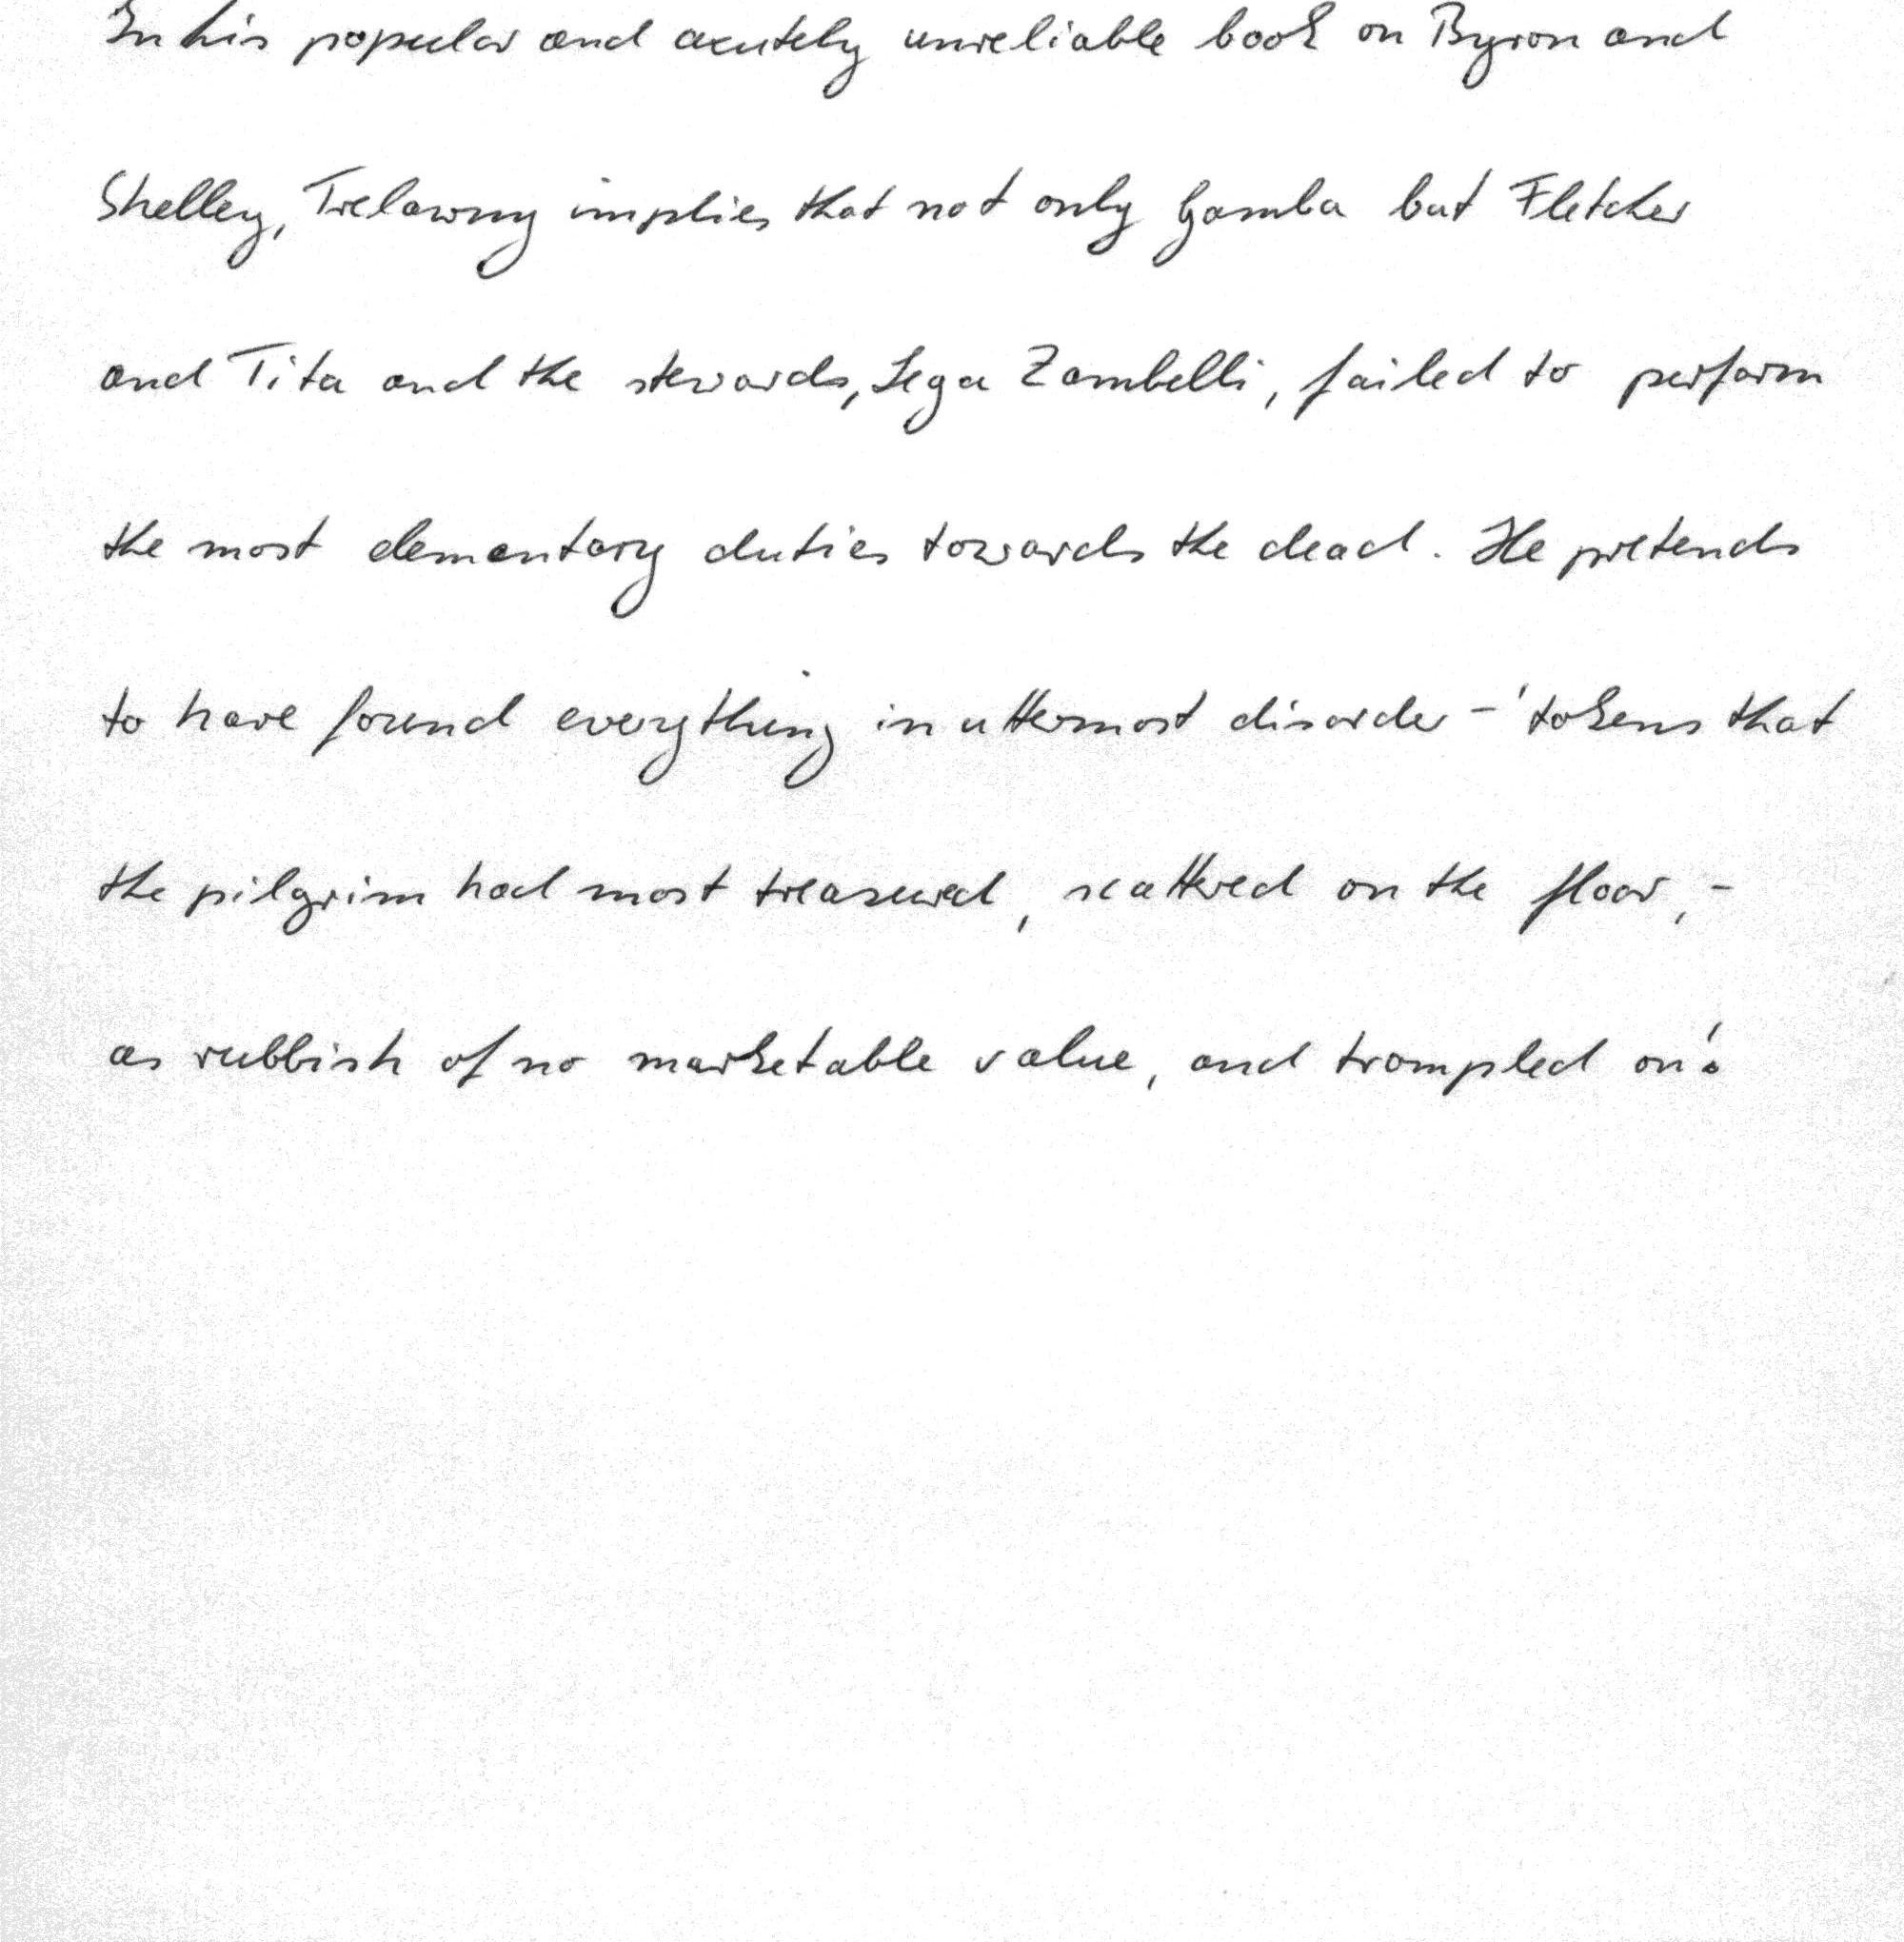 In his popular and acutely unreliable book on Byron and
Shelley, Trelawny implies that not only Gamba but Fletcher
and Tita and the stewards, Lega Zambelli, failed to perform
the most elementary duties towards the dead. He pretends
to have found everything in uttermost disorder - 'tokens that
the pilgrim had most treasured, scattered on the floor, -
as rubbish of no marketable value, and trampled on'.